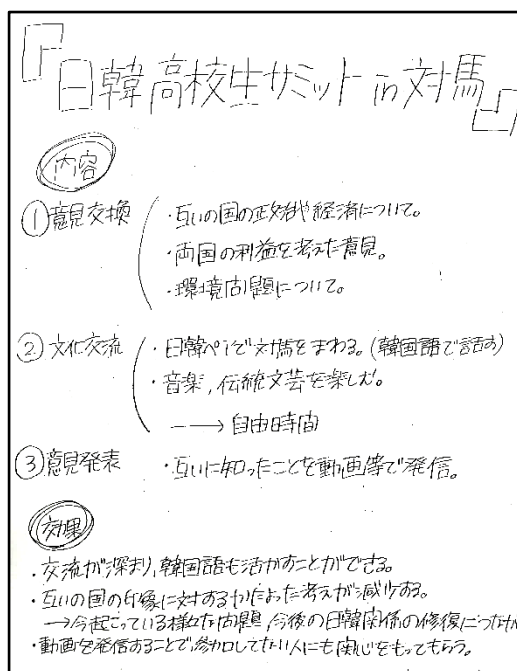 『日韓高校生サミット in 対馬』
内容
①意見交換
・互いの国の政治や経済について。
・両国の利益を考えた意見。
・環境問題について。
②文化交流
・日韓ペアで対馬をまわる。(韓国語で話す)
・音楽,伝統文芸を楽しむ。
→自由時間
③意見発表
・互いに知ったことを動画等で発信。
効果
・交流が深まり,韓国語も活かすことができる。
・互いの国の印象に対するかたよった考えが減少する。
→今起こっている様々な問題,今後の日韓関係の修復につなが
・動画を発信することで,参加してない人にも関心をもってもらう。